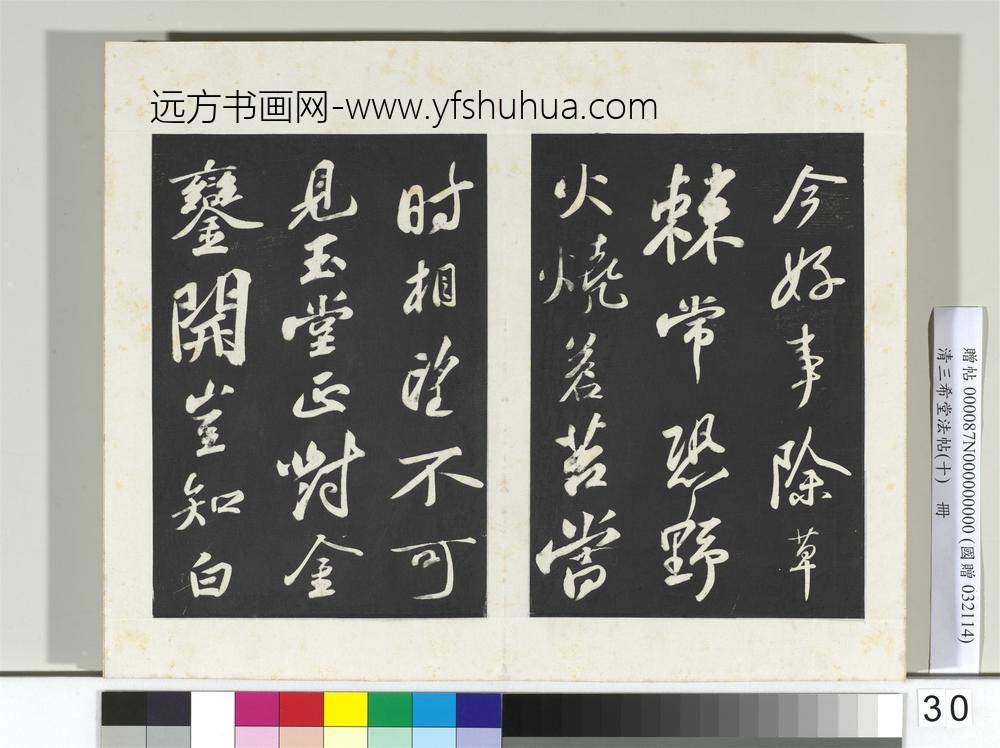 远方书画网-www.yfshuhua.com
今好事除草
棘常恐野
火燒蒼苔當
時相望不可
見玉堂正對金
鑾開豈知白
贈帖 000087N000000000 (國贈 032114)
清三希堂法帖(十) 冊
30